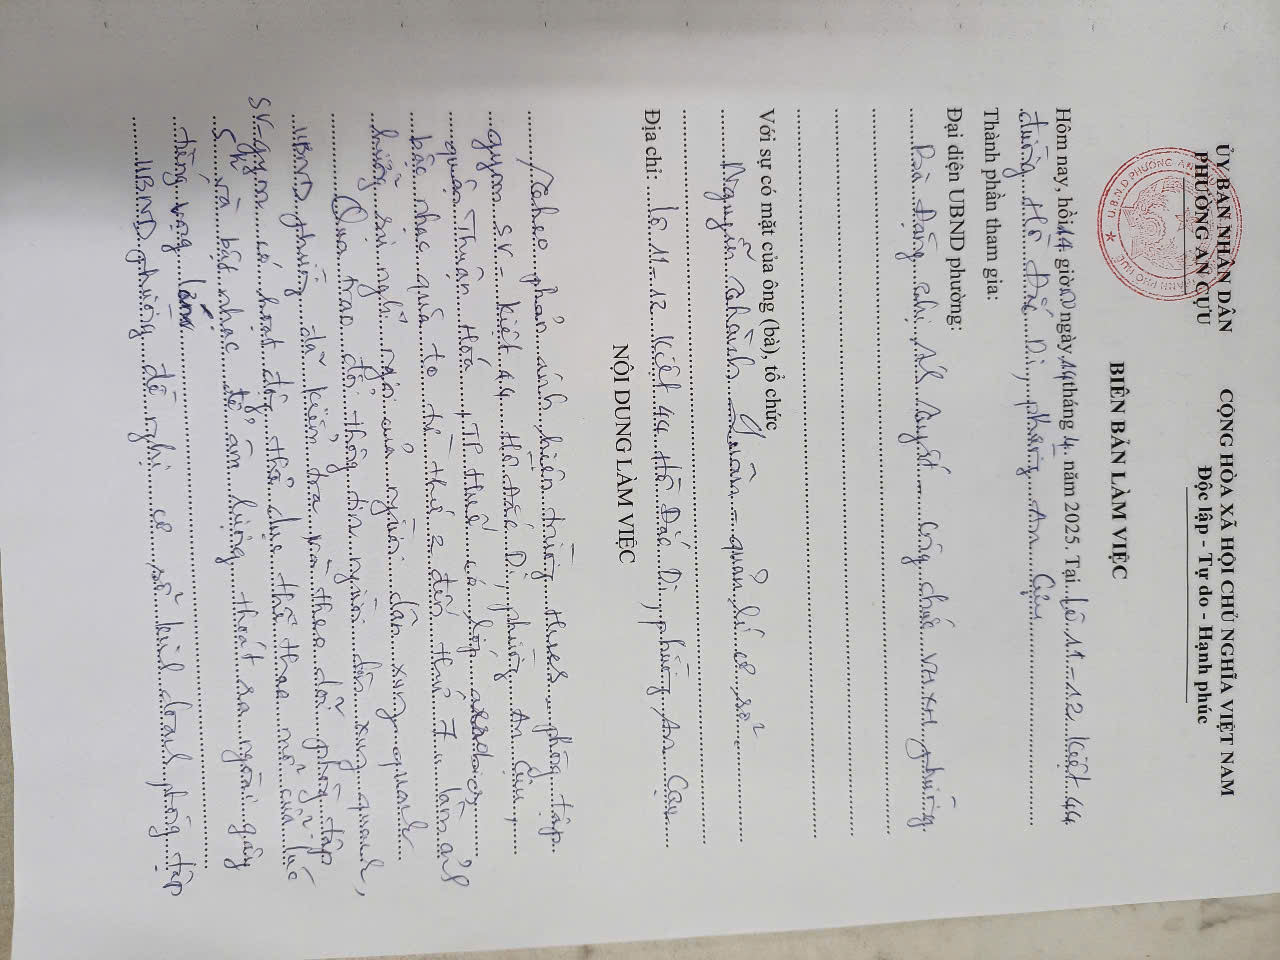 ỦY BAN NHÂN DÂN
PHƯỜNG AN CỰU
CỘNG HÒA XÃ HỘI CHỦ NGHĨA VIỆT NAM
Độc lập - Tự do - Hạnh phúc
U.B.N.D PHƯỜNG AN
BIÊN BẢN LÀM VIỆC
Hôm nay, hồi 14 giờ ngày 14 tháng 4 năm 2025. Tại Lô 11-12 Kiệt 44
đường Hồ Đắc Di, phường An Cựu
Thành phần tham gia:
Đại diện UBND phường:
Bà Đặng Thị - công chức VHXH phường
Với sự có mặt của ông (bà), tổ chức
Nguyễn Thành Luân - quản lí cơ sở
Địa chỉ: Lô 11-12 Kiệt 44 Hồ Đắc Di, phường An Cựu
NỘI DUNG LÀM VIỆC
Theo phản ánh hiện trường phòng tập
gym SV - Kiệt 44 Hồ Đắc Di, phường An Cựu,
quận Thuận Hóa, TP Huế có lớp
bậc nhạc quá to từ thứ 2 đến thứ 7 làm ảnh
hưởng sự nghỉ ngơi của người dân xung quanh
Qua trao đổi thông tin người dân xung quanh,
UBND phường đã kiểm tra và theo dõi phòng tập
SV-gym có hoạt động thể dục thể thao mở cửa lúc
5h và bật nhạc to âm lượng thoát ra ngoài gây
tiếng vang lớn
UBND phường đề nghị cơ sở kinh doanh phòng tập